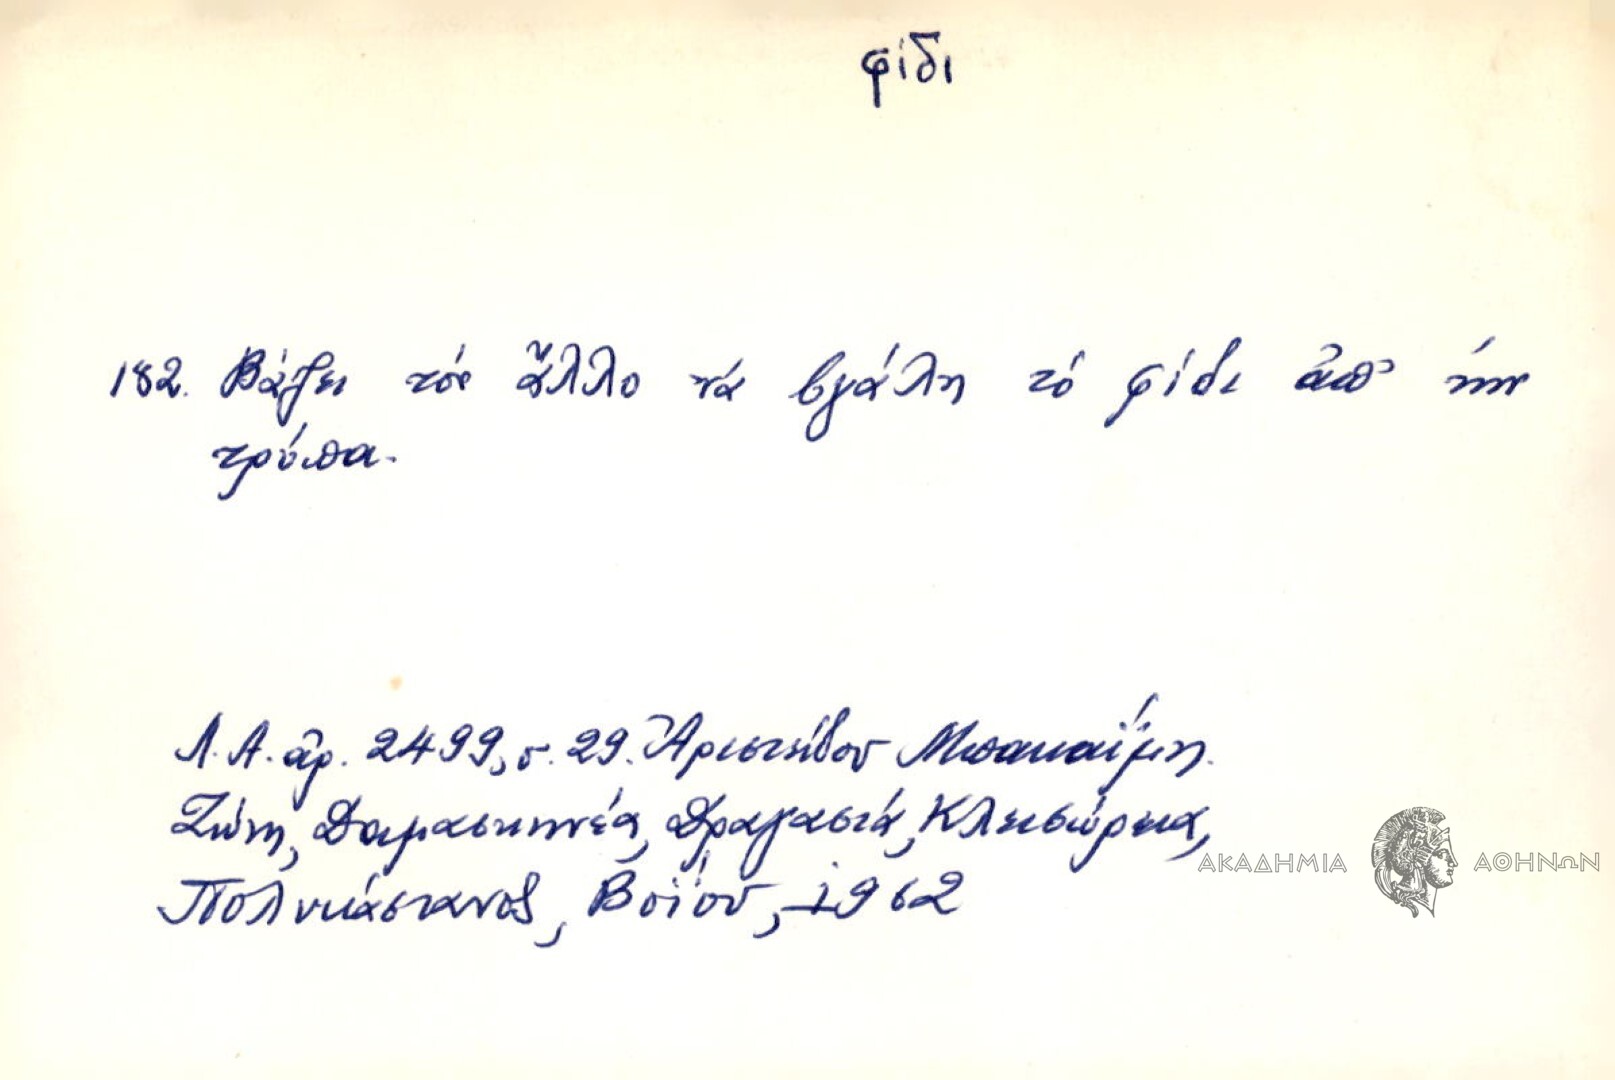 φίδι
182. Βάζει τόν ἄλλο νά βγάλη τό φίδι ἀπ' τήν
τρύπα.
Λ.Α. ἀρ. 2499, σ. 29. Ἀριστείδου Μπακαΐμη.
Ζώνη, Δαμασκηνέα, Δραγασιά, Κλεισώρεια,
Πολυκάστανος, Βοΐου, 1962
ΑΚΑΔΗΜΙΑ ΑΘΗΝΩΝ